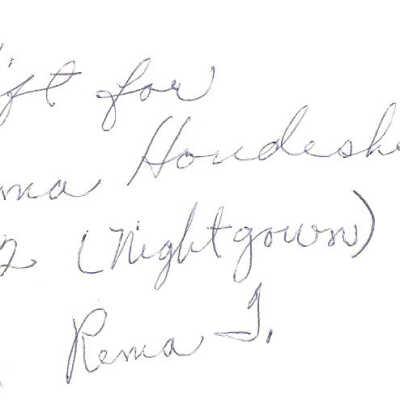 ift for
ma Houdeshe
2 (Nightgown)
Rema T.